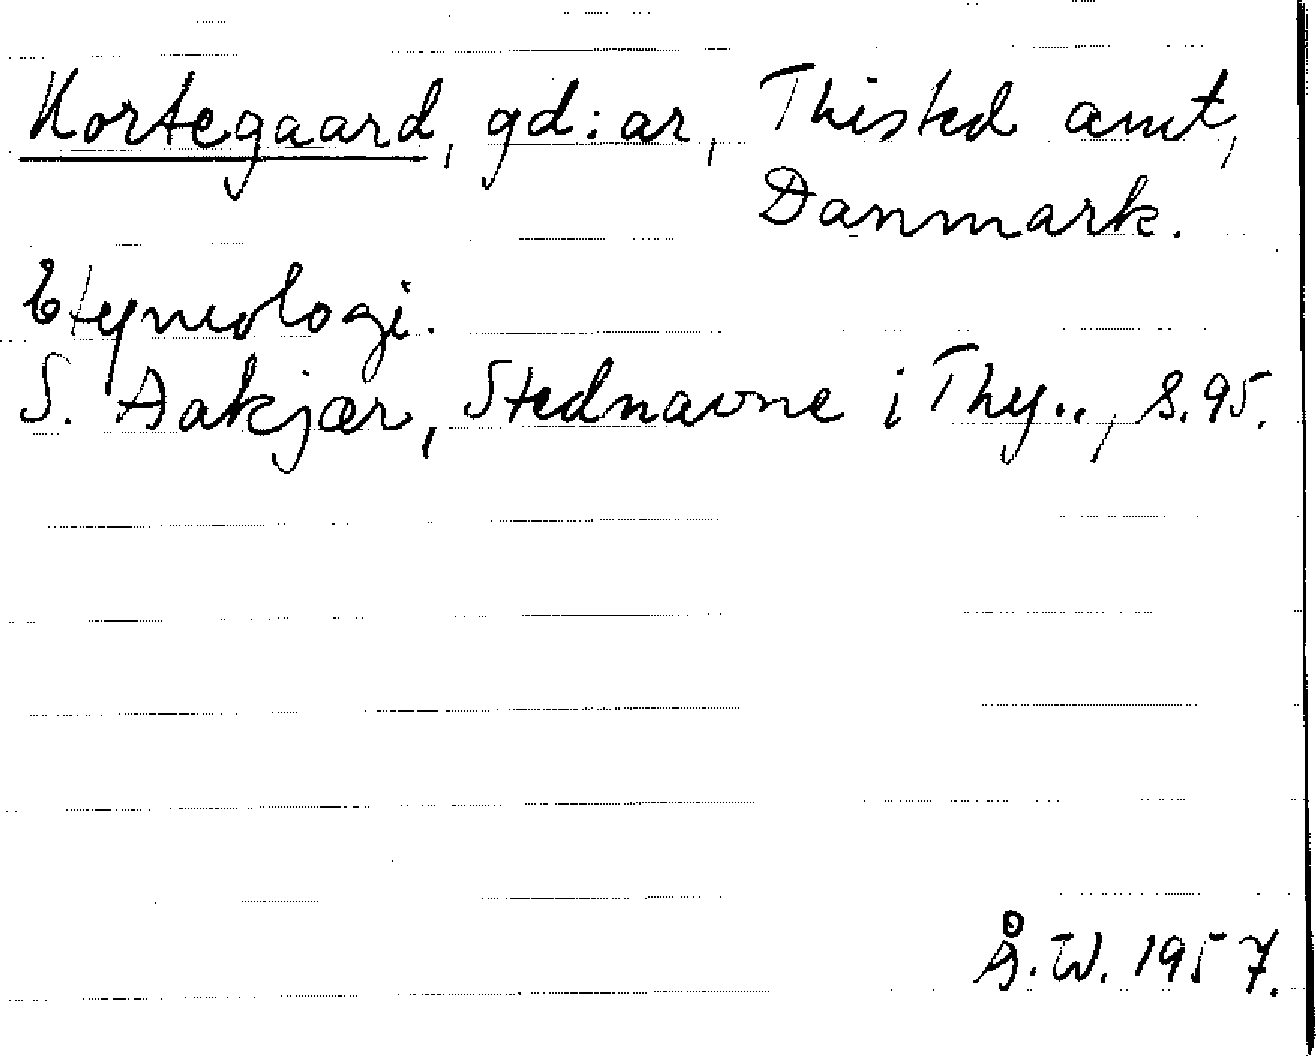 Kortegaard, gd:ar, Thisted amt,
Danmark.
Etymologi.
S. Aakjær, Stednavne i Thy.., s. 95.
Å.W. 1957.